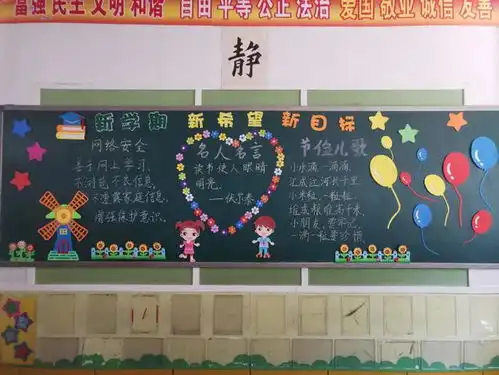 富强 民主 文明 和谐 自由 平等 公正 法治 爱国 敬业 诚信 友善
静
新学期 新希望 新目标
网络安全
善于网上学习,
不浏览不良信息,
不泄露家庭信息,
增强保护意识。
名人名言
读书使人眼睛
明亮。
——伏尔泰
节位儿歌
小水滴一滴滴
汇成江河长千里
小米粒,一粒粒,
堆
小朋友,要牢记,
一滴一粒要珍惜